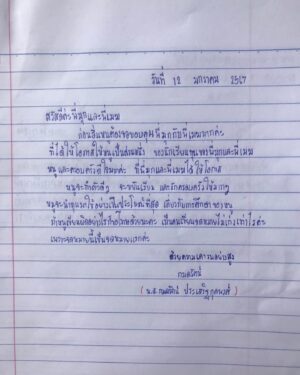 วันที่ 12 มกราคม 2567
สวัสดีค่ะพี่มุกและพี่เมฆ
ก่อนอื่นหนูต้องขอขอบคุณพี่มุกกับพี่เมฆมากๆค่ะ
ที่ได้ให้โอกาสให้หนูเป็นส่วนหนึ่ง ของนักเรียนทุนของพี่มุกและพี่เมฆ
หนูและครอบครัวดีใจมากค่ะ ที่พี่มุกและพี่เมฆได้ให้โอกาส
หนูจะตั้งใจ จะขยันเรียน และรักครอบครัวให้มากๆ
หนูจะนำทุนมาใช้อย่างเป็นประโยชน์ที่สุด เกี่ยวกับการศึกษาของหนู
ถ้าหนูเขียนผิดอย่างไรก็ขอโทษด้วยนะคะ เป็นคนเขียนจดหมายไม่เก่งเท่าไรค่ะ
เพราะจดหมายนี้เป็นจดหมายแรกค่ะ
ด้วยความเคารพอย่างสูง
กมลรัตน์
(น.ส.กมลรัตน์ ประเสริฐ)